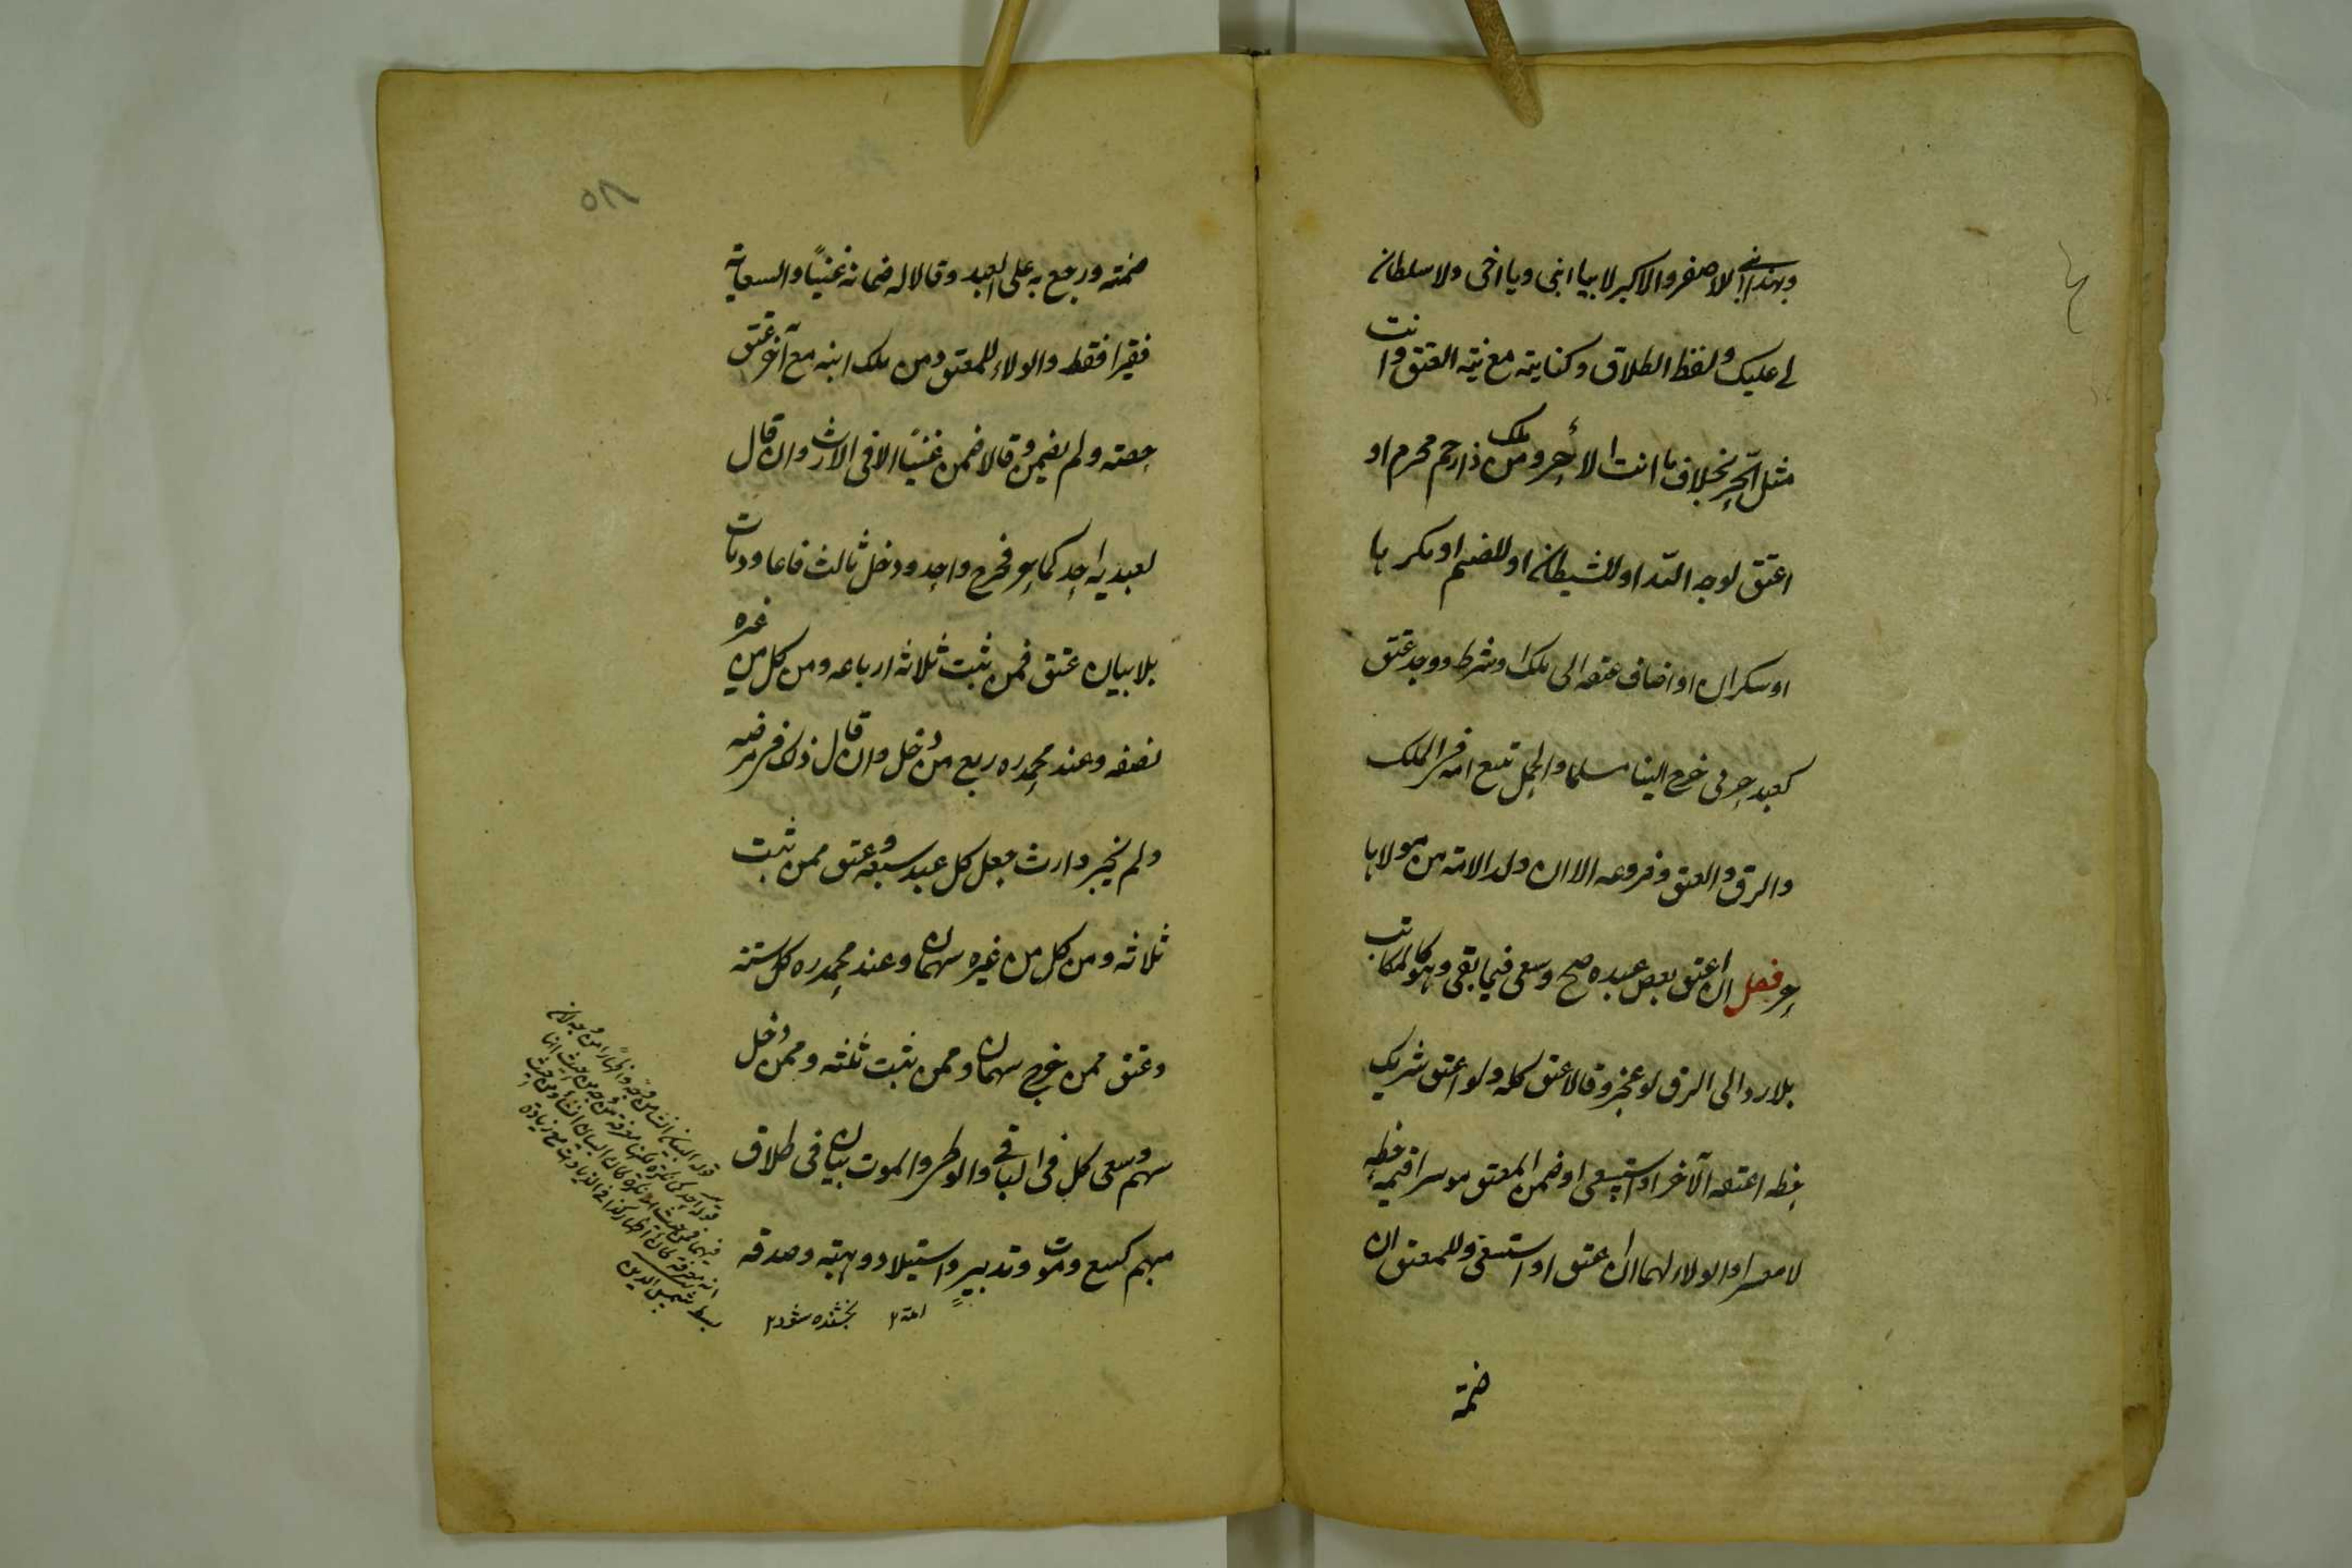 وبهذا ابني للاصغر والاكبر لا بيا ابني ويا اخي ولا سلطان
لي عليك ولفظ الطلاق وكنايته مع نية العتق وانت
مثل الحر بخلاف ما انت الا حر ومن ملك ذا رحم محرم او
اعتق لوجه الله او للشيطان او للصنم او مكرها
او سكران او اضاف عتقه الى ملك او شرط ووجد عتق
كعبد حربي خرج الينا مسلما والحمل تبع امه في الملك
والرق والعتق وفروعه الا ان ولد الامة من مولاها
حر فصل ان اعتق بعض عبده صح وسعى فيما بقي وهو كالمكاتب
بلا رد الى الرق لو عجز وقالا عتق كله ولو اعتق شريك
حظه اعتقه الآخر او استسعى او ضمن المعتق موسرا قيمة حظه
لا معسرا والولاء لهما ان اعتق او استسعى وللمعتق ان
ضمنه
٨٥
ضمنه ورجع به على العبد وقالا له ضمانه غنيًا والسعاية
فقيرا فقط والولاء للمعتق ومن ملك ابنه مع آخر عتق
حصته ولم يضمن وقالا ضمن غنيًا الا في الارث وان قال
لعبديه احدكما حر فخرج واحد ودخل ثالث فاعاد ومات
بلا بيان عتق ممن ثبت ثلاثة ارباعه ومن كل من غيره
نصفه وعند محمد ره ربع من دخل وان قال ذلك في مرضه
ولم يجز وارث جعل كل عبد سبعة وعتق ممن ثبت
ثلاثة ومن كل من غيره سهمان وعند محمد ره كل ستة
وعتق ممن خرج سهمان وممن ثبت ثلثة وممن دخل
سهم وسعى كل في الباقي والوطئ والموت بيان في طلاق
مبهم كبيع وموت وتدبير واستيلاد وهبة وصدقة
بخشنده شود ٢